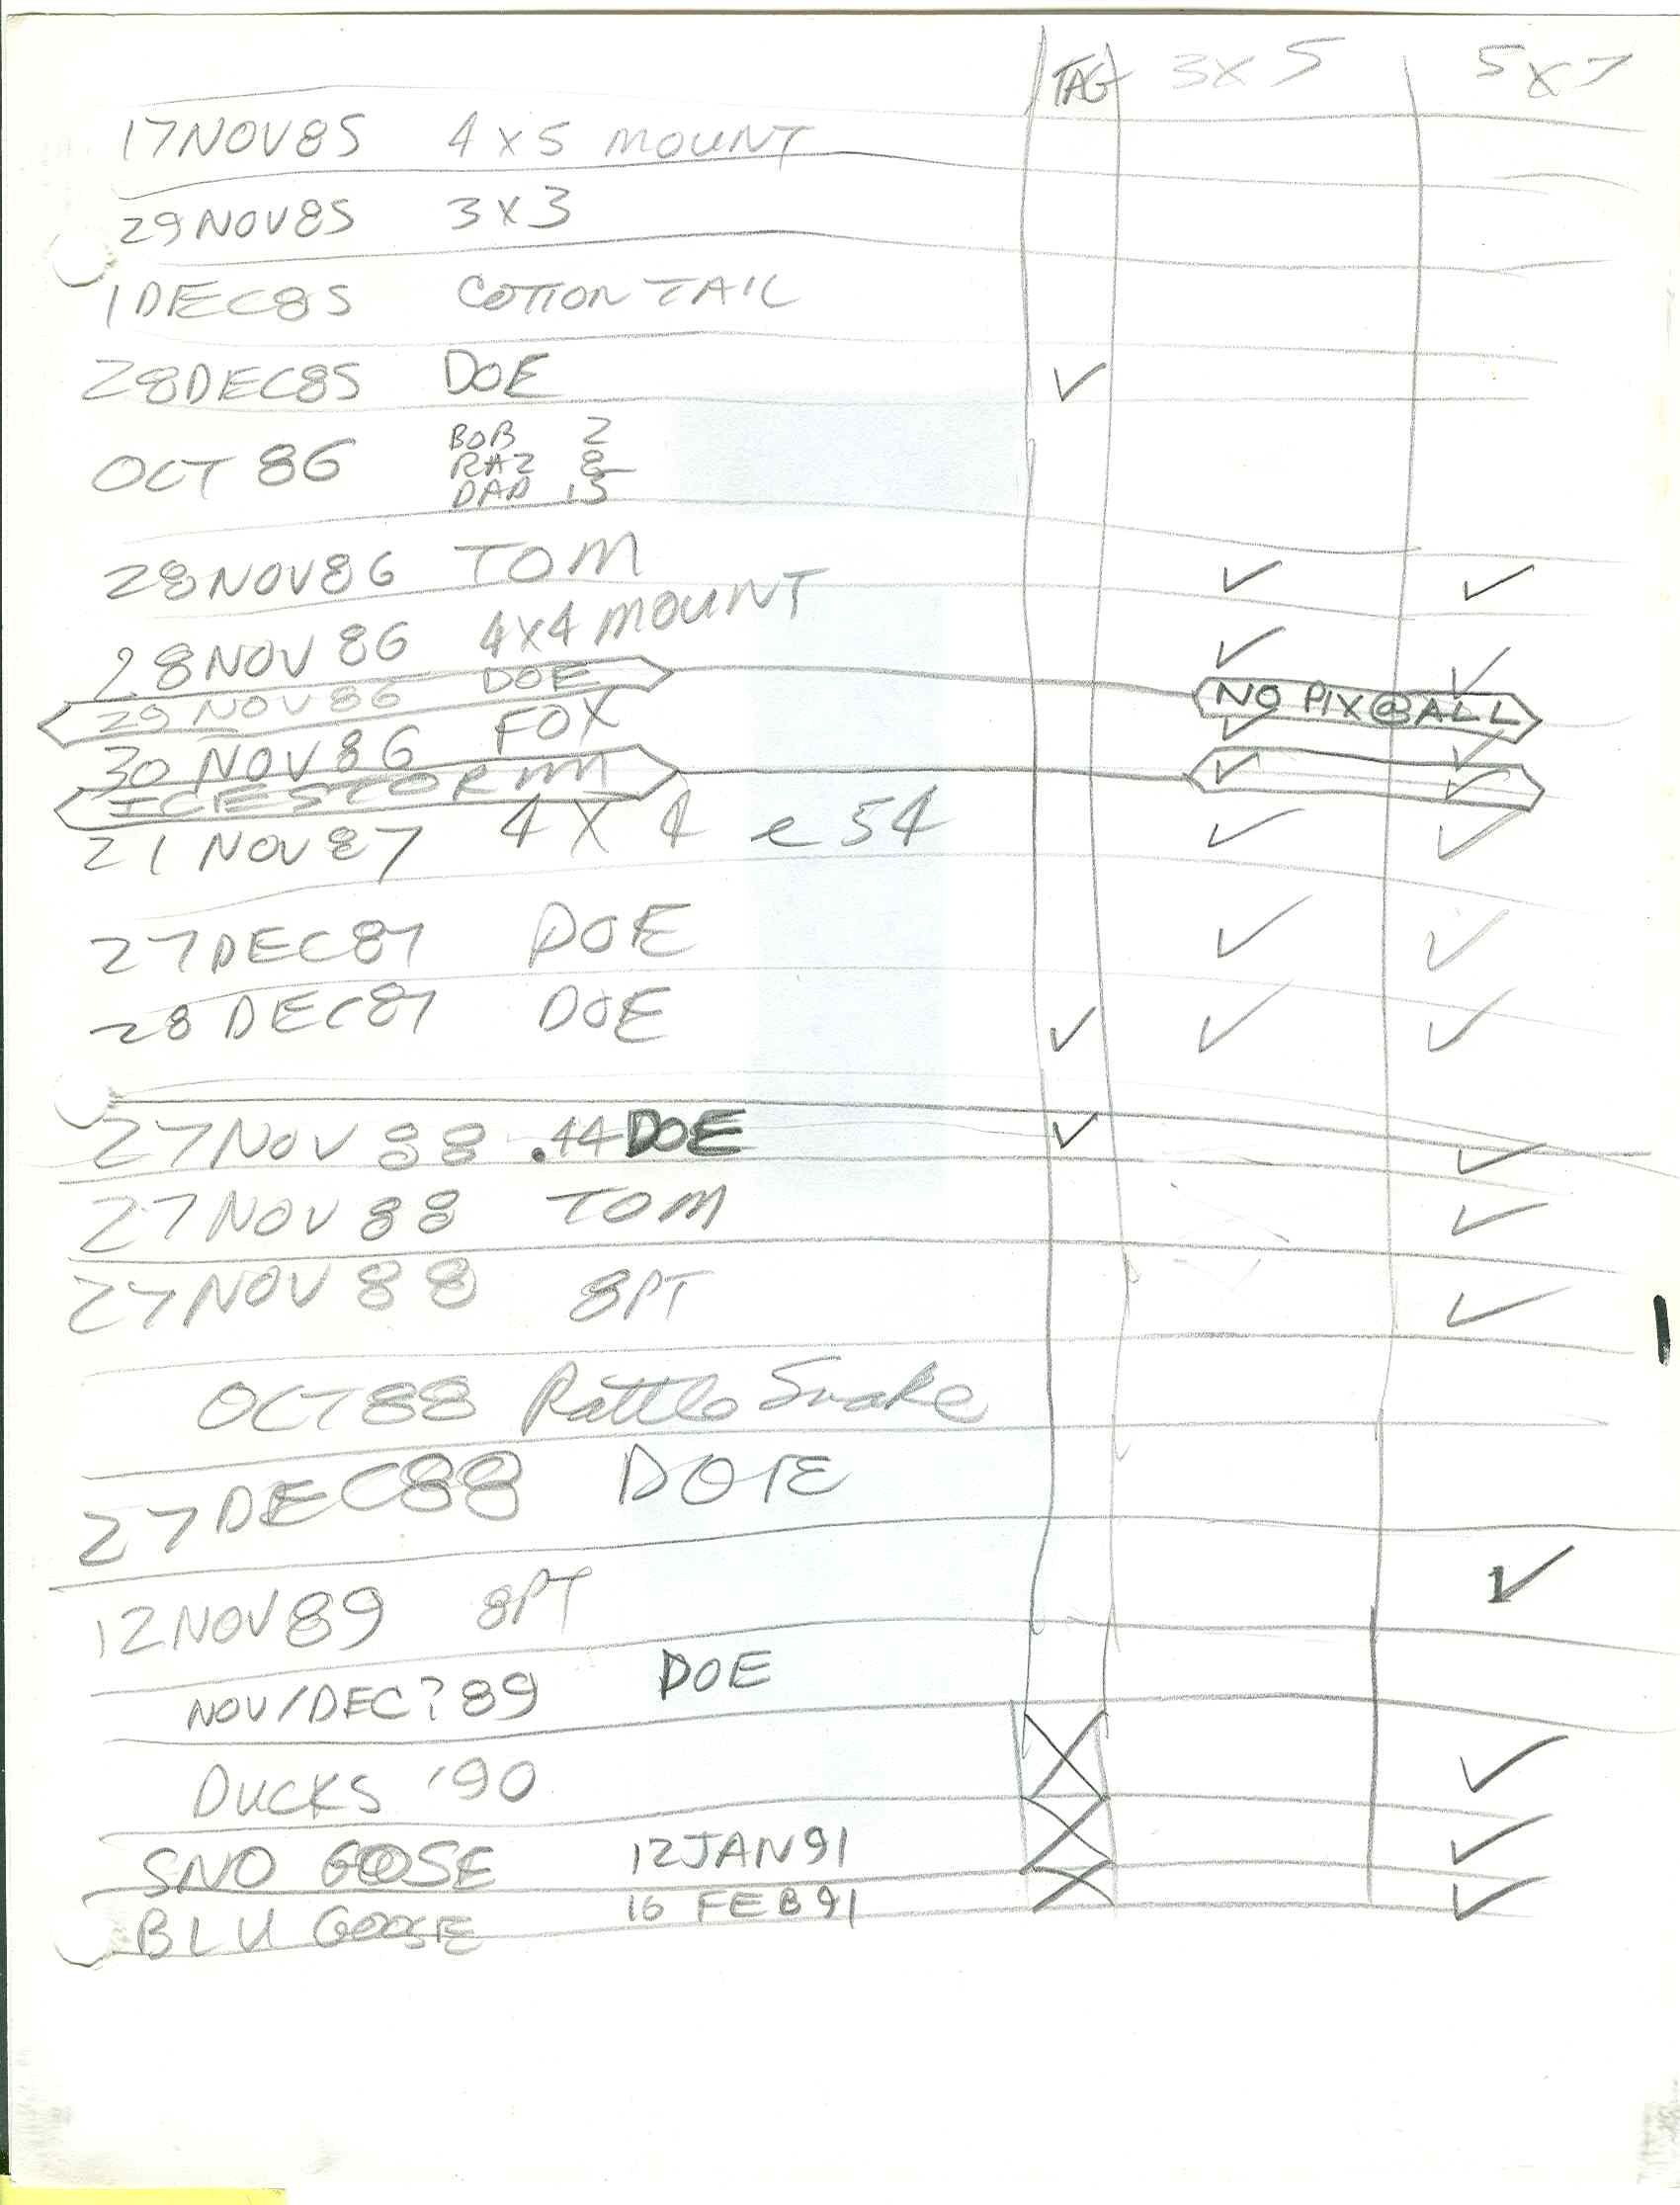 TAG 3X5 5X7
17NOV85 4X5 MOUNT
29NOV85 3X3
1DEC85 COTTONTAIL
28DEC85 DOE ✓
BOB 2
OCT 86 RAZ 8
DAD 13
28NOV86 TOM ✓ ✓
28NOV86 4X4 MOUNT ✓ ✓
29NOV86 DOE NO PIX@ALL
30NOV86 FOX ✓ ✓
ICESTORM ✓ ✓
21NOV87 4X4 e 54 ✓ ✓
27DEC87 DOE ✓ ✓
28DEC87 DOE ✓ ✓ ✓
27NOV88 .44 DOE ✓ ✓
27NOV88 TOM ✓
27NOV88 8PT ✓
OCT88 Rattle Snake
27DEC88 DOE
12NOV89 8PT ✓
NOV/DEC?89 DOE
DUCKS '90 X ✓
SNO GOOSE 12JAN91 X ✓
BLU GOOSE 16FEB91 X ✓